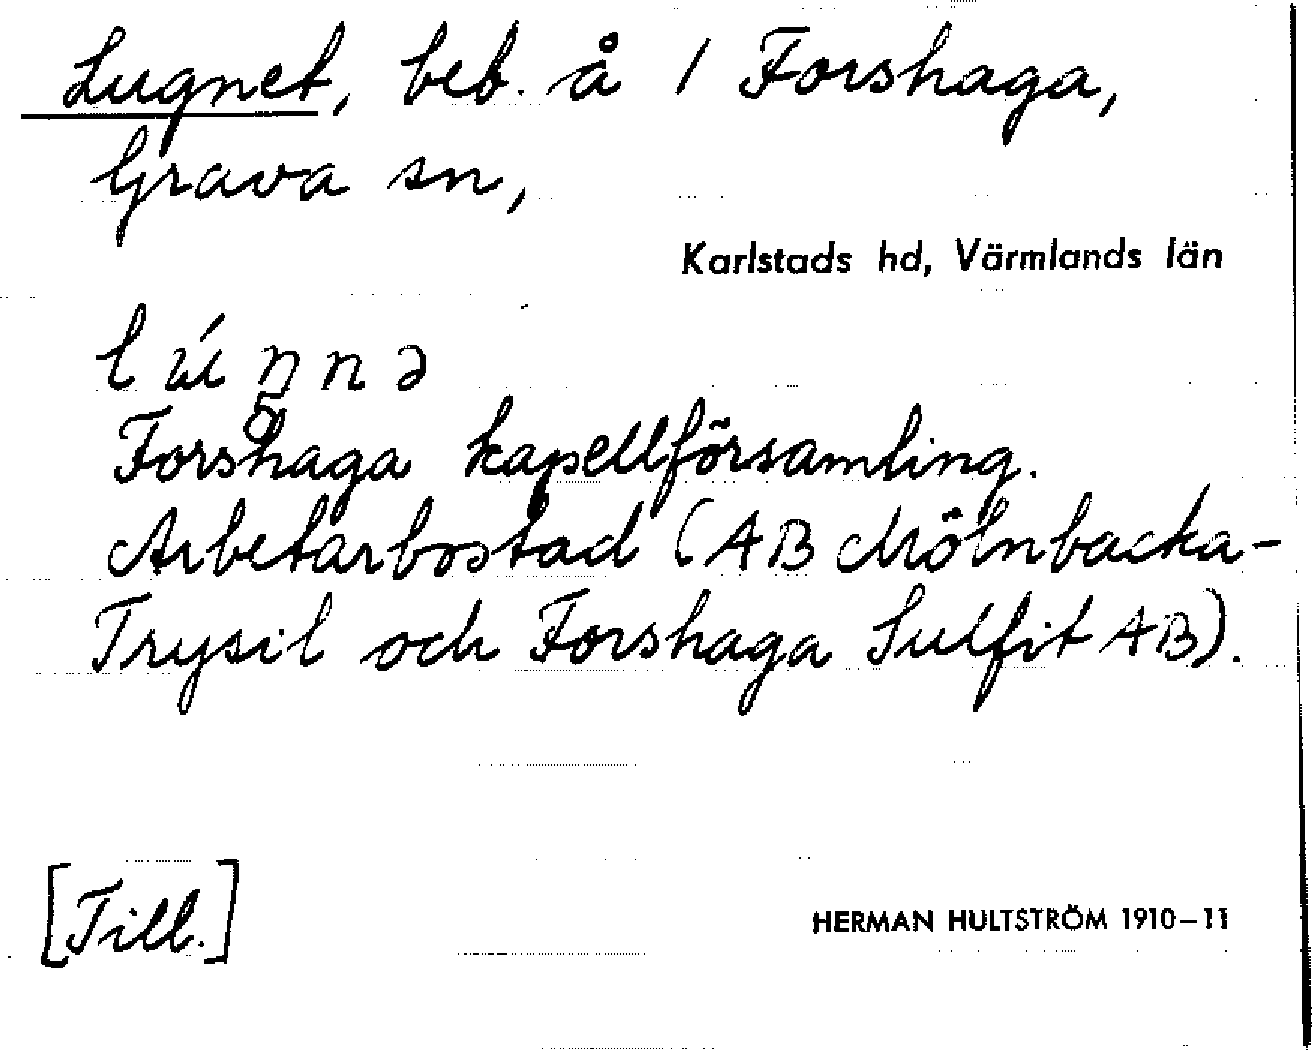 Lugnet, beb. å 1 Forshaga,
Grava sn,
Karlstads hd, Värmlands län
Forshaga kapellförsamling.
Arbetarbostad (AB Mölnbacka-
Trysil och Forshaga Sulfit AB).
[Till.]
HERMAN HULTSTRÖM 1910–11